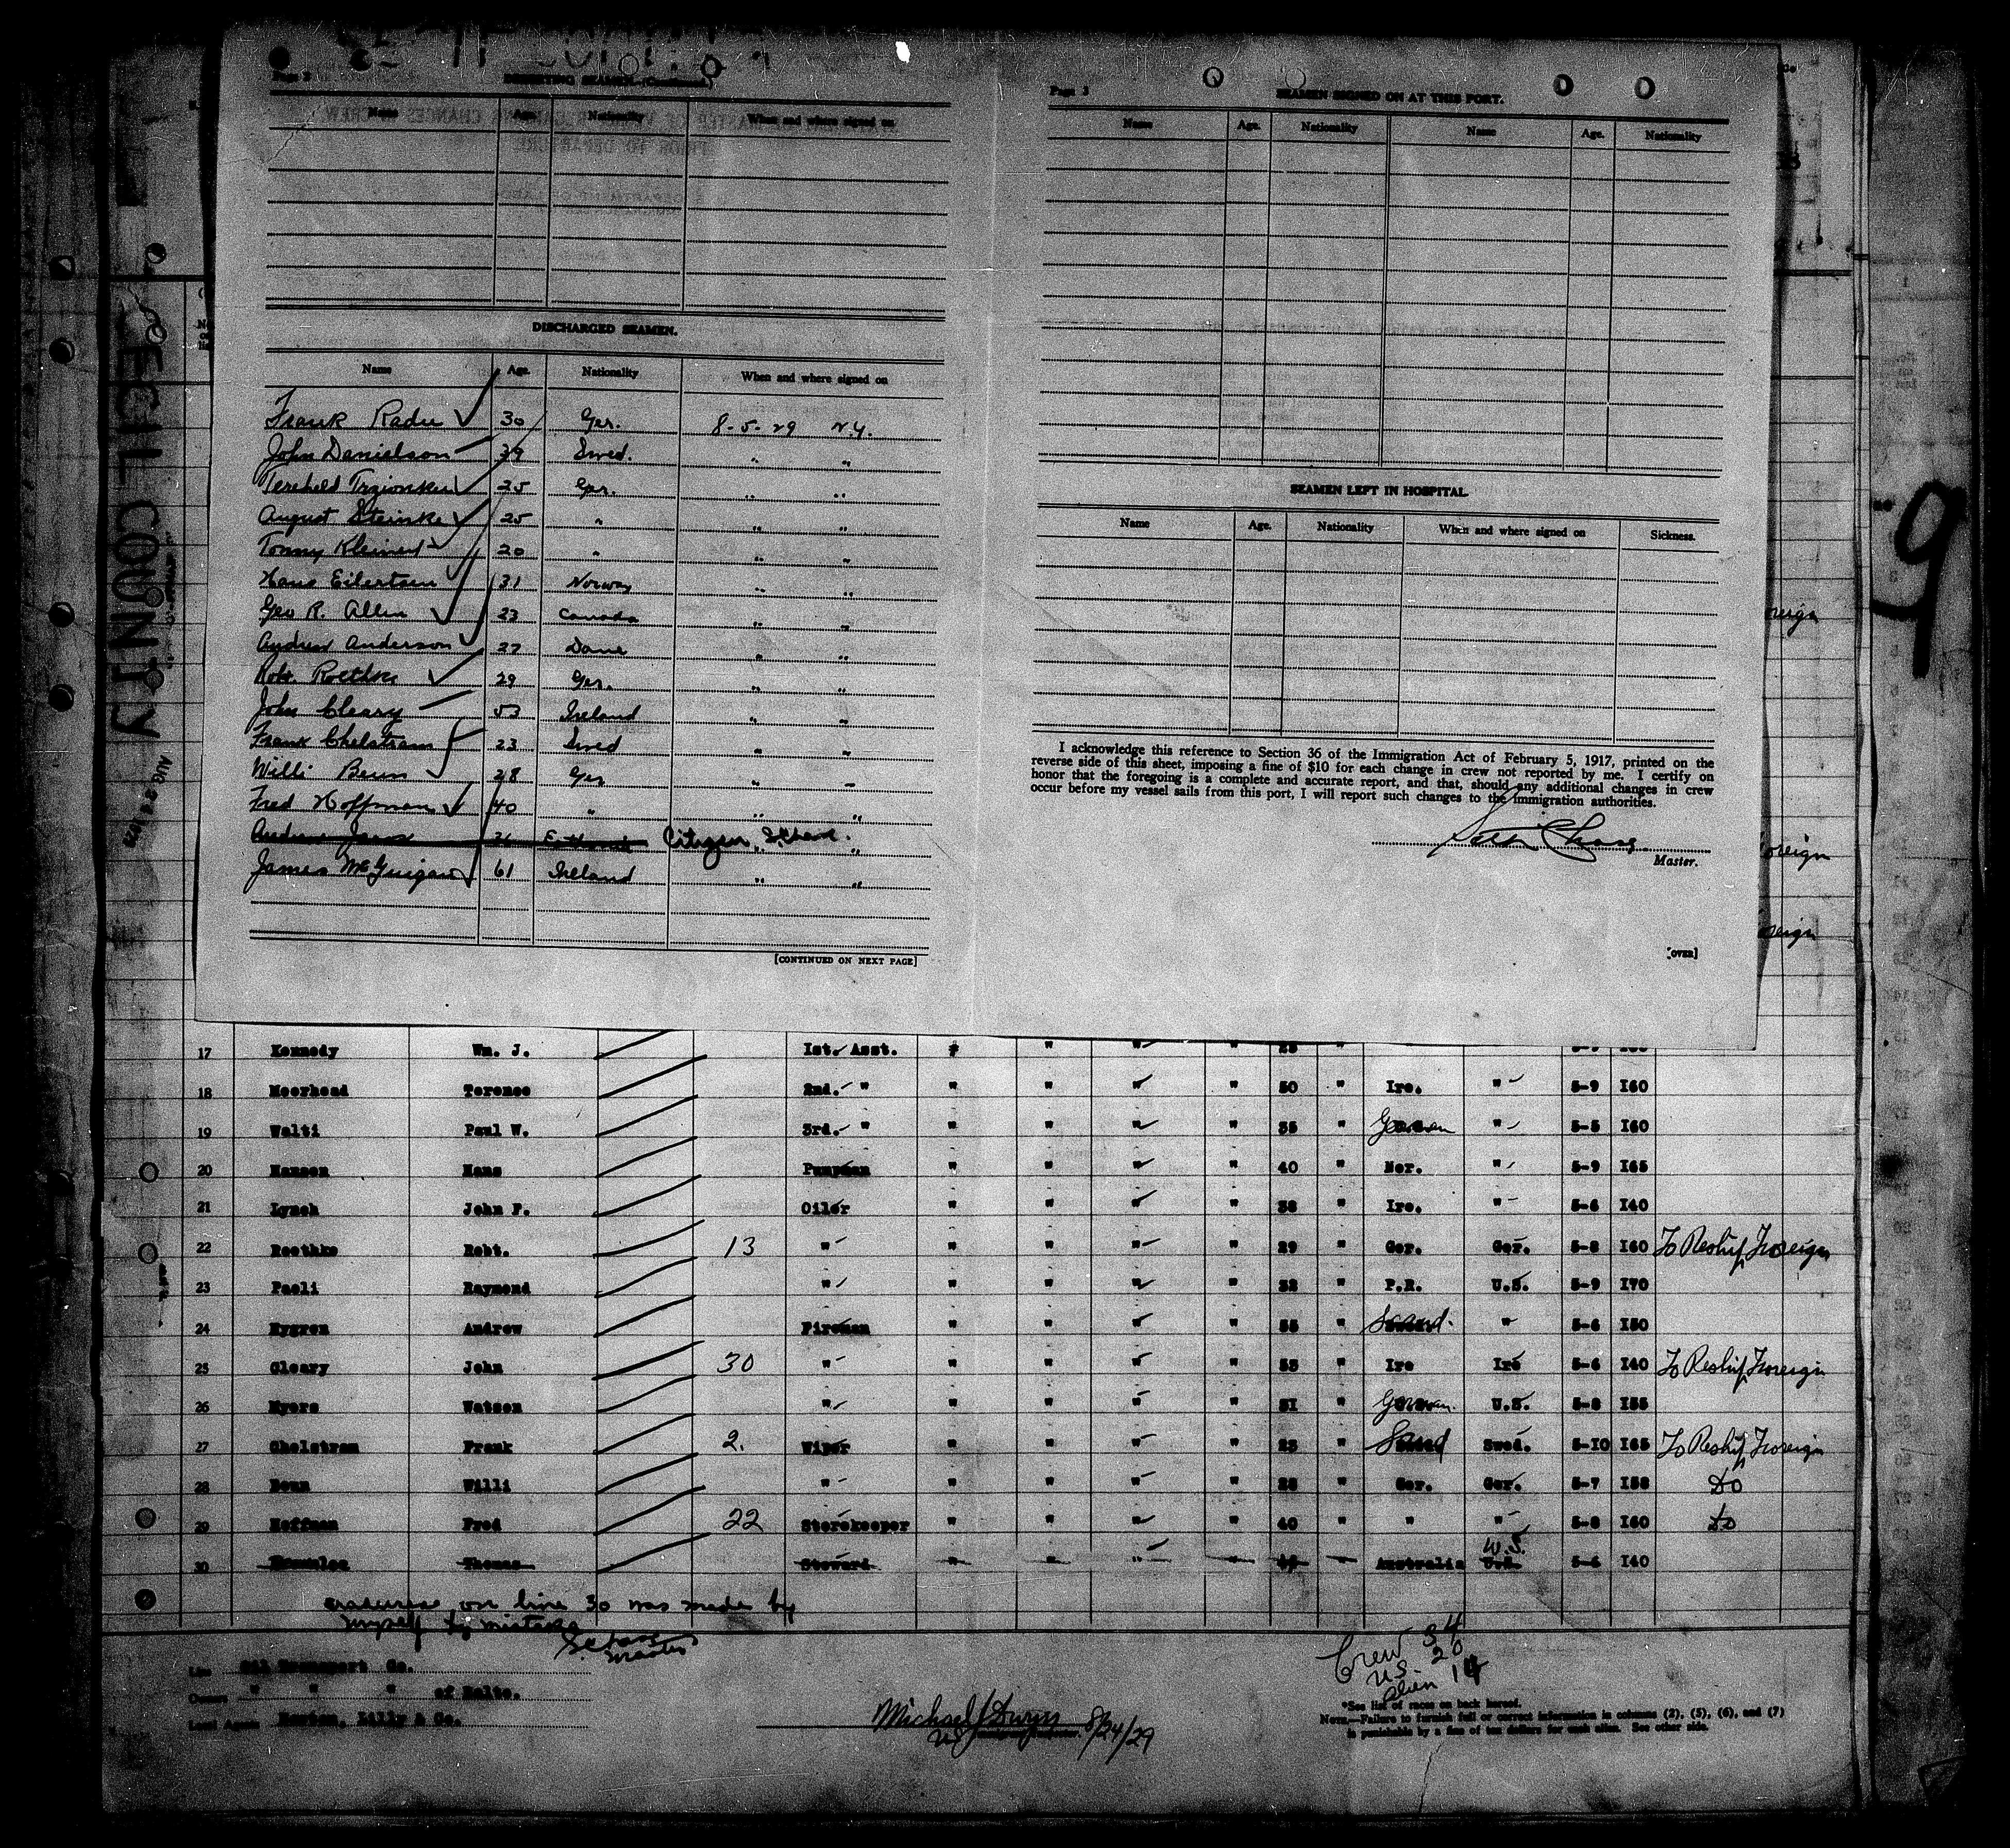 Page 2 DESERTING SEAMEN (Continued)
Name Age. Nationality When and where signed on
DISCHARGED SEAMEN.
Name Age. Nationality When and where signed on
Frank Radu 30 Ger. 8-5-29 N.Y.
John Danielson 39 Swed. " "
25 Ger. " "
August Steinke 25 " " "
Tonny Kleinert 20 " " "
Hans Eilertsen 31 Norway " "
Geo R. Allen 23 Canada " "
Andrew Anderson 27 Dane " "
Robt. Roethke 29 Ger. " "
John Cleary 53 Ireland " "
Frank Chelstram 23 Swed " "
Willi Benn 28 Ger " "
Fred Hoffman 40 " " "
Citizen " "
James McGuigan 61 Ireland " "
[CONTINUED ON NEXT PAGE]
Page 3 SEAMEN SIGNED ON AT THIS PORT.
Name Age. Nationality Name Age. Nationality
SEAMEN LEFT IN HOSPITAL.
Name Age. Nationality When and where signed on Sickness.
I acknowledge this reference to Section 36 of the Immigration Act of February 5, 1917, printed on the
reverse side of this sheet, imposing a fine of $10 for each change in crew not reported by me. I certify on
honor that the foregoing is a complete and accurate report, and that, should any additional changes in crew
occur before my vessel sails from this port, I will report such changes to the Immigration authorities.
Master.
[OVER]
CECIL COUNTY
AUG 24 1929
9
oreign
oreign
oreign
17 Kennedy Wm. J. 1st. Asst. " " " " "
18 Moorhead Terence 2nd. " " " " " 50 " Ire. " 5-9 160
19 Walti Paul W. 3rd. " " " " " 35 " German " 5-5 160
20 Hansen Hans Pumpman " " " " 40 " Nor. " 5-9 165
21 Lynch John F. Oiler " " " " 38 " Ire. " 5-6 140
22 Roethke Robt. 13 " " " " " 29 " Ger. Ger. 5-8 160 To Reship Foreign
23 Paoli Raymond " " " " " 32 " P.R. U.S. 5-9 170
24 Nygren Andrew Fireman " " " " 55 " " 5-6 150
25 Cleary John 30 " " " " " 53 " Ire Ire 5-6 140 To Reship Foreign
26 Myers Watson " " " " " 51 " German. U.S. 5-8 155
27 Chelstram Frank 2. Wiper " " " " 23 " Swed Swed. 5-10 165 To Reship Foreign
28 Benn Willi " " " " " 28 " Ger. Ger. 5-7 158 Do
29 Hoffman Fred 22 Storekeeper " " " " 40 " " " 5-8 160 Do
30 Thomas Steward " " " " " Australia U.S. U.S. 5-6 140
erasures on line 30 was made by
myself by mistake
S. Chase
Master
Line Oil Transport Co.
Owners " " " of Balto.
Local Agents Norton, Lilly & Co.
Crew 34
US. 20
Alien 14
Michael J. 8/24/29
*See list of races on back hereof.
NOTE.—Failure to furnish full or correct information in columns (2), (5), (6), and (7)
is punishable by a fine of ten dollars for each alien. See other side.